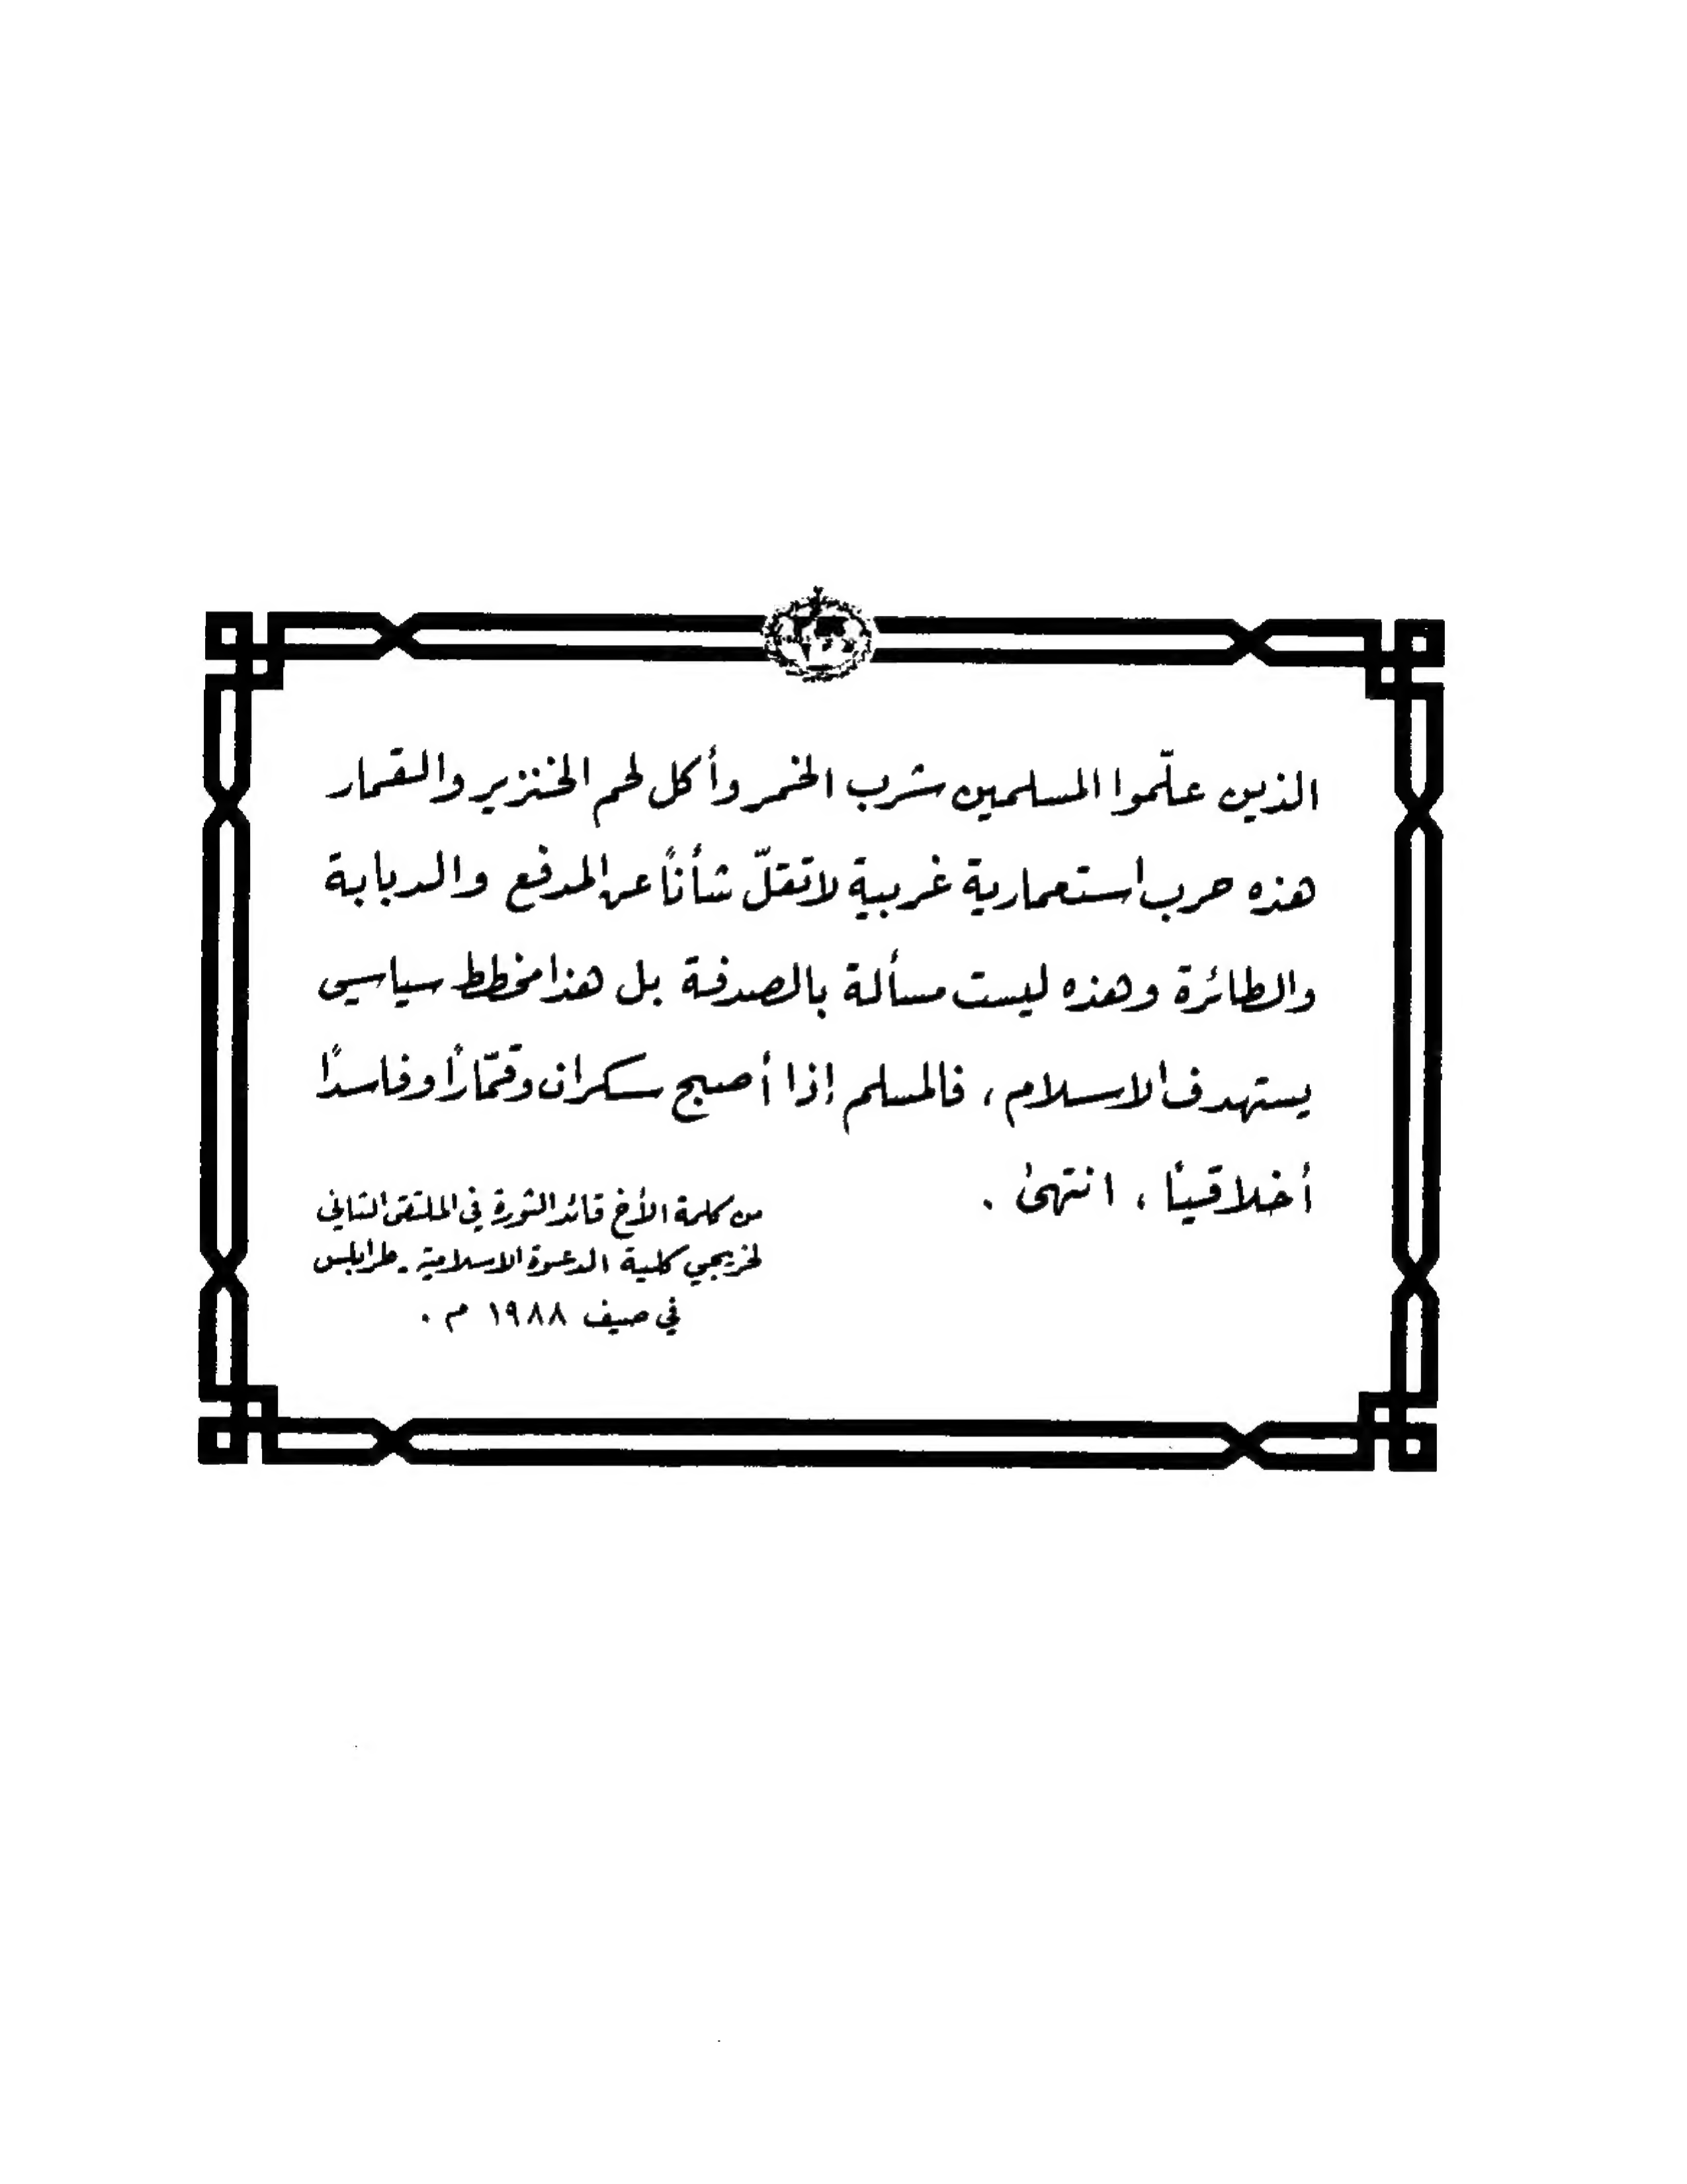 الذين علّموا المسلمين شرب الخمر وأكل لحم الخنزير والقمار
هذه حرب استعمارية غربية لا تقلّ شأناً عن المدفع والدبابة
والطائرة وهذه ليست مسألة بالصدفة بل هذا مخطط سياسي
يستهدف الاسلام ، فالمسلم إذا أصبح سكران وقمّاراً وفاسداً
أخلاقياً ، انتهىٰ .
من كلمة الأخ قائد الثورة في الملتقى الثاني
لخريجي كلية الدعوة الاسلامية - طرابلس
في صيف ١٩٨٨ م .